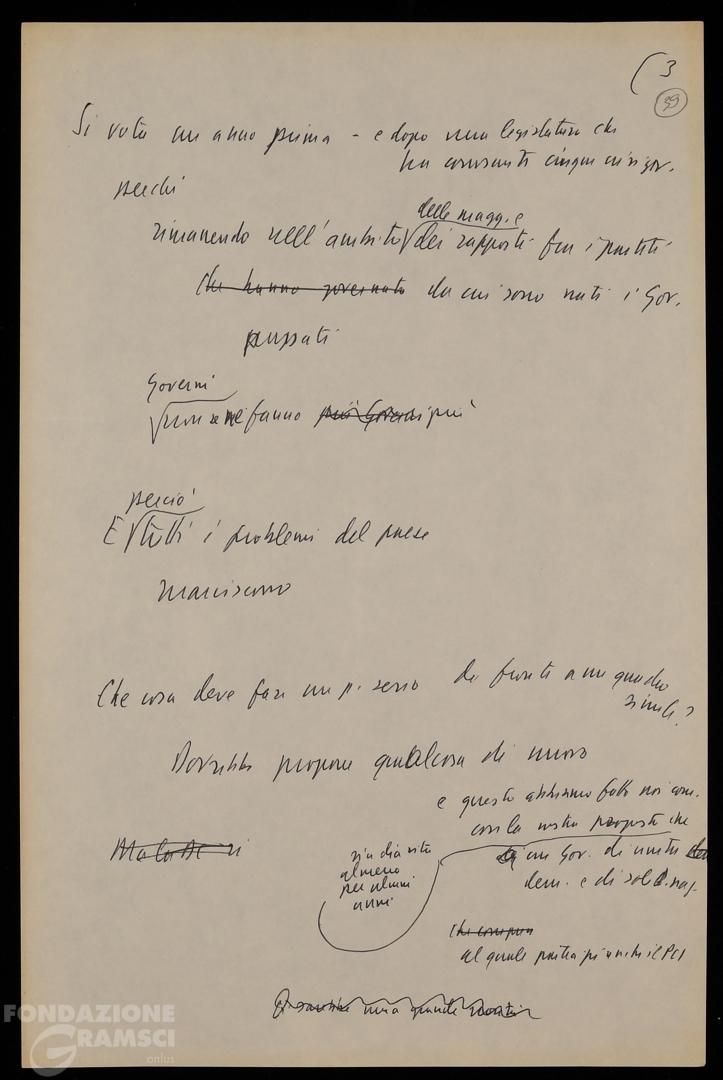 (3
39
Si vota un anno prima - e dopo una legislatura che
ha consumato cinque crisi gov.
perché
delle magg. e
rimanendo nell'ambito dei rapporti fra i partiti
che hanno governato da cui sono nati i Gov.
passati
Governi
non se ne fanno più Governi più
perciò
E tutti i problemi del paese
marciscono
Che cosa deve fare un p. serio di fronte a un quadro
simile?
Dovrebbe proporre qualcosa di nuovo
e questo abbiamo fatto noi com.
con la nostra proposta che
Ma la DC
si dia vita
almeno
per alcuni
anni
di un Gov. di unità
dem. e di solid. naz.
al quale partecipi anche il PCI
una grande
FONDAZIONE
GRAMSCI
onlus